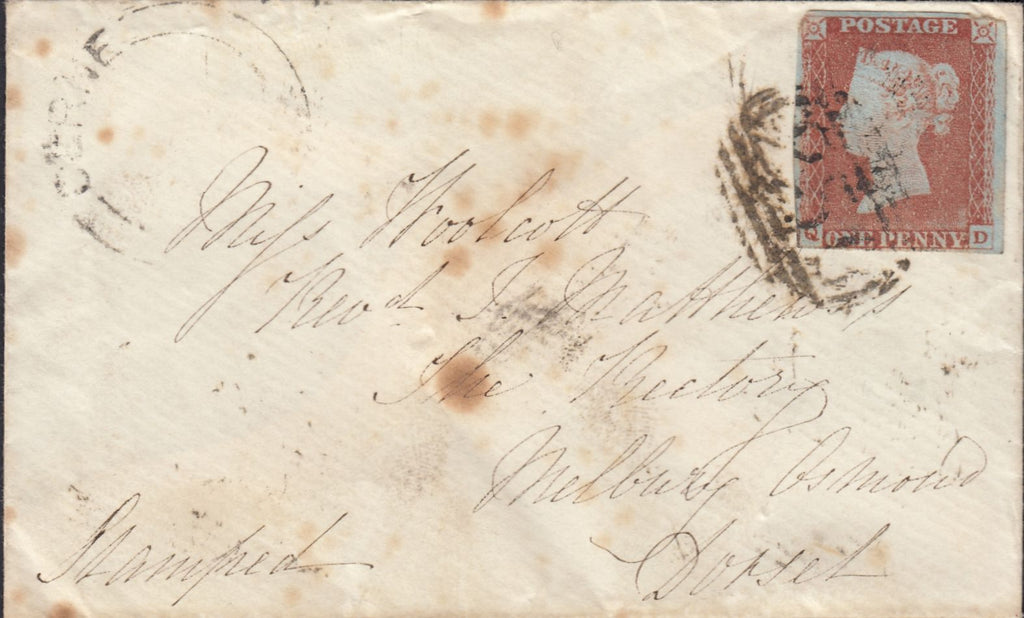 CERNE
POSTAGE
Q D
ONE PENNY
Miss Woolcott
Revd. J. Matthews's
The Rectory
Melbury Osmond
Dorset
Stamped